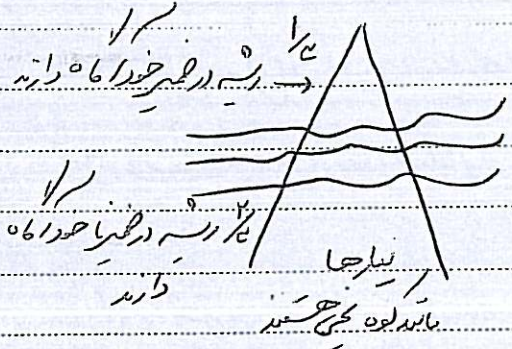 ۱/۳
← ریشه در ضمیر خودآگاه دارند
۲/۳ ریشه در ضمیر ناخودآگاه
دارند
نیازها
مانند کوه یخی هستند